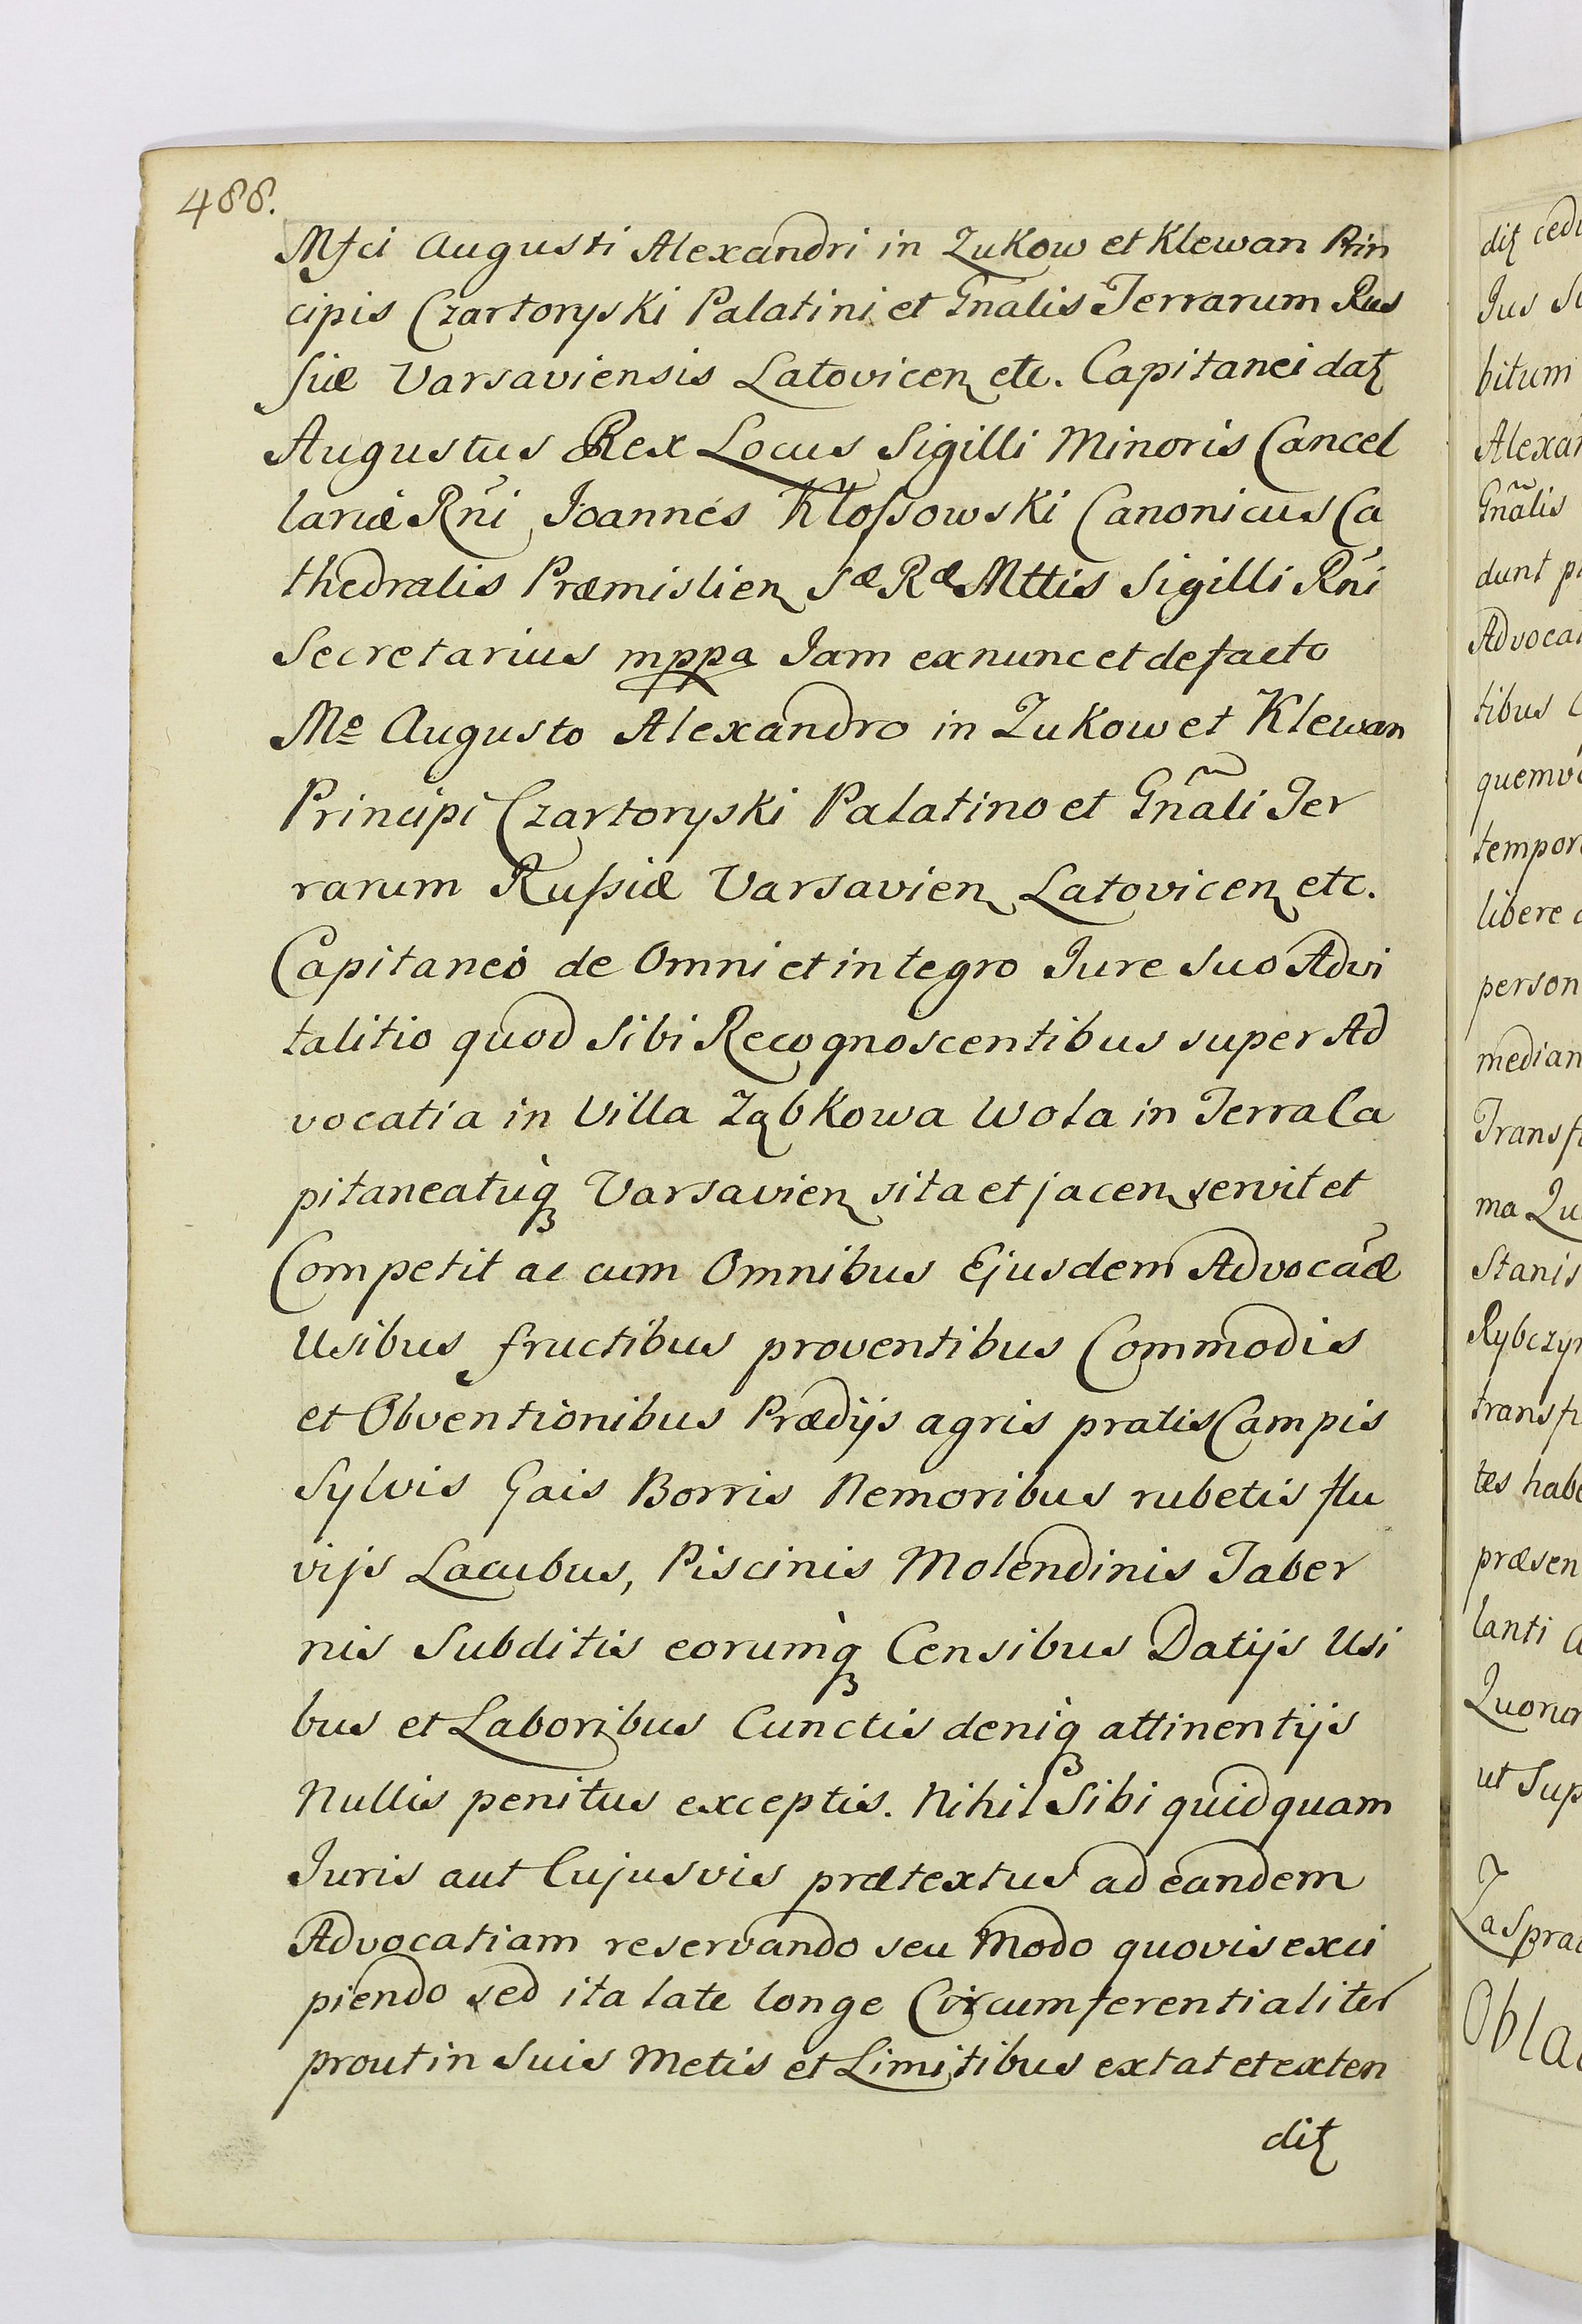 488.
Mfci Augusti Alexandri in Zukow et Klewan Prin
cipis Czartoryski Palatini et Gnalis Terrarum Rus
siæ Varsaviensis Latovicen etc. Capitanei datt
Augustus Rex Locus Sigilli Minoris Cancel
lariæ Rñi Joannes Kłossowski Canonicus Ca
thedralis Præmislien Sæ Ræ Mttis Sigilli Rñi
Secretarius mppa Jam ex nunc et defacto
Mo Augusto Alexandro in Zukow et Klewan
Principi Czartoryski Palatino et Gnãli Ter
rarum Russiæ Varsavien Latovicen etc.
Capitaneo de Omni et integro Jure Suo Advi
talitio quod Sibi Recognoscentibus super Ad
vocatia in Villa Ząbkowa Wola in Terra Ca
pitaneatuq́ Varsavien sita et jacen servit et
Competit ac cum Omnibus Ejusdem Advocãæ
Usibus fructibus proventibus Commodis
et Obventionibus Prædijs agris pratis Campis
Sylvis Gais Borris Nemoribus rubetis flu
vijs Lacubus, Piscinis Molendinis Taber
nis Subditis eorumq́ Censibus Datijs Usi
bus et Laboribus Cunctis deniq́ attinentijs
Nullis penitus exceptis. Nihil Sibi quidquam
Juris aut Cujusvis prætextus ad eandem
Advocatiam reservando seu Modo quovis exci
piendo sed ita late longe Circumferentialiter
prout in Suis Metis et Limitibus extat et exten
ditt
ditt
Jus
bitum
Gnãlis
dunt
tibus
libere
person
ma
Stanis
tes
lanti
ut